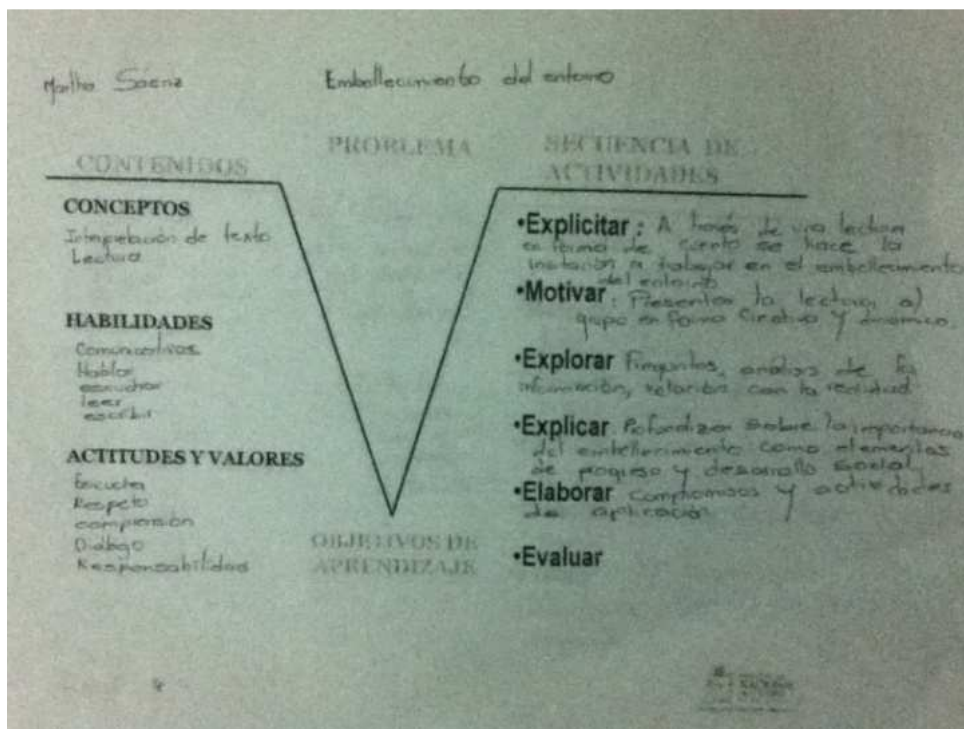 Martha Sáenz
Embellecimiento del entorno
CONTENIDOS
PROBLEMA
SECUENCIA DE
ACTIVIDADES
CONCEPTOS
Interpretación de texto
Lectura
HABILIDADES
Comunicativas
Hablar
escuchar
leer
escribir
ACTITUDES Y VALORES
Escucha
Respeto
comprensión
Diálogo
Responsabilidad
OBJETIVOS DE
APRENDIZAJE
•Explicitar: A través de una lectura
en forma de cuento se hace la
invitación a trabajar en el embellecimiento
del entorno
•Motivar: Presentar la lectura al
grupo en forma creativa y dinámica.
•Explorar Preguntas, análisis de la
información, relación con la realidad
•Explicar Profundizar sobre la importancia
del embellecimiento como elementos
de progreso y desarrollo social
•Elaborar compromisos y actividades
de aplicación
•Evaluar